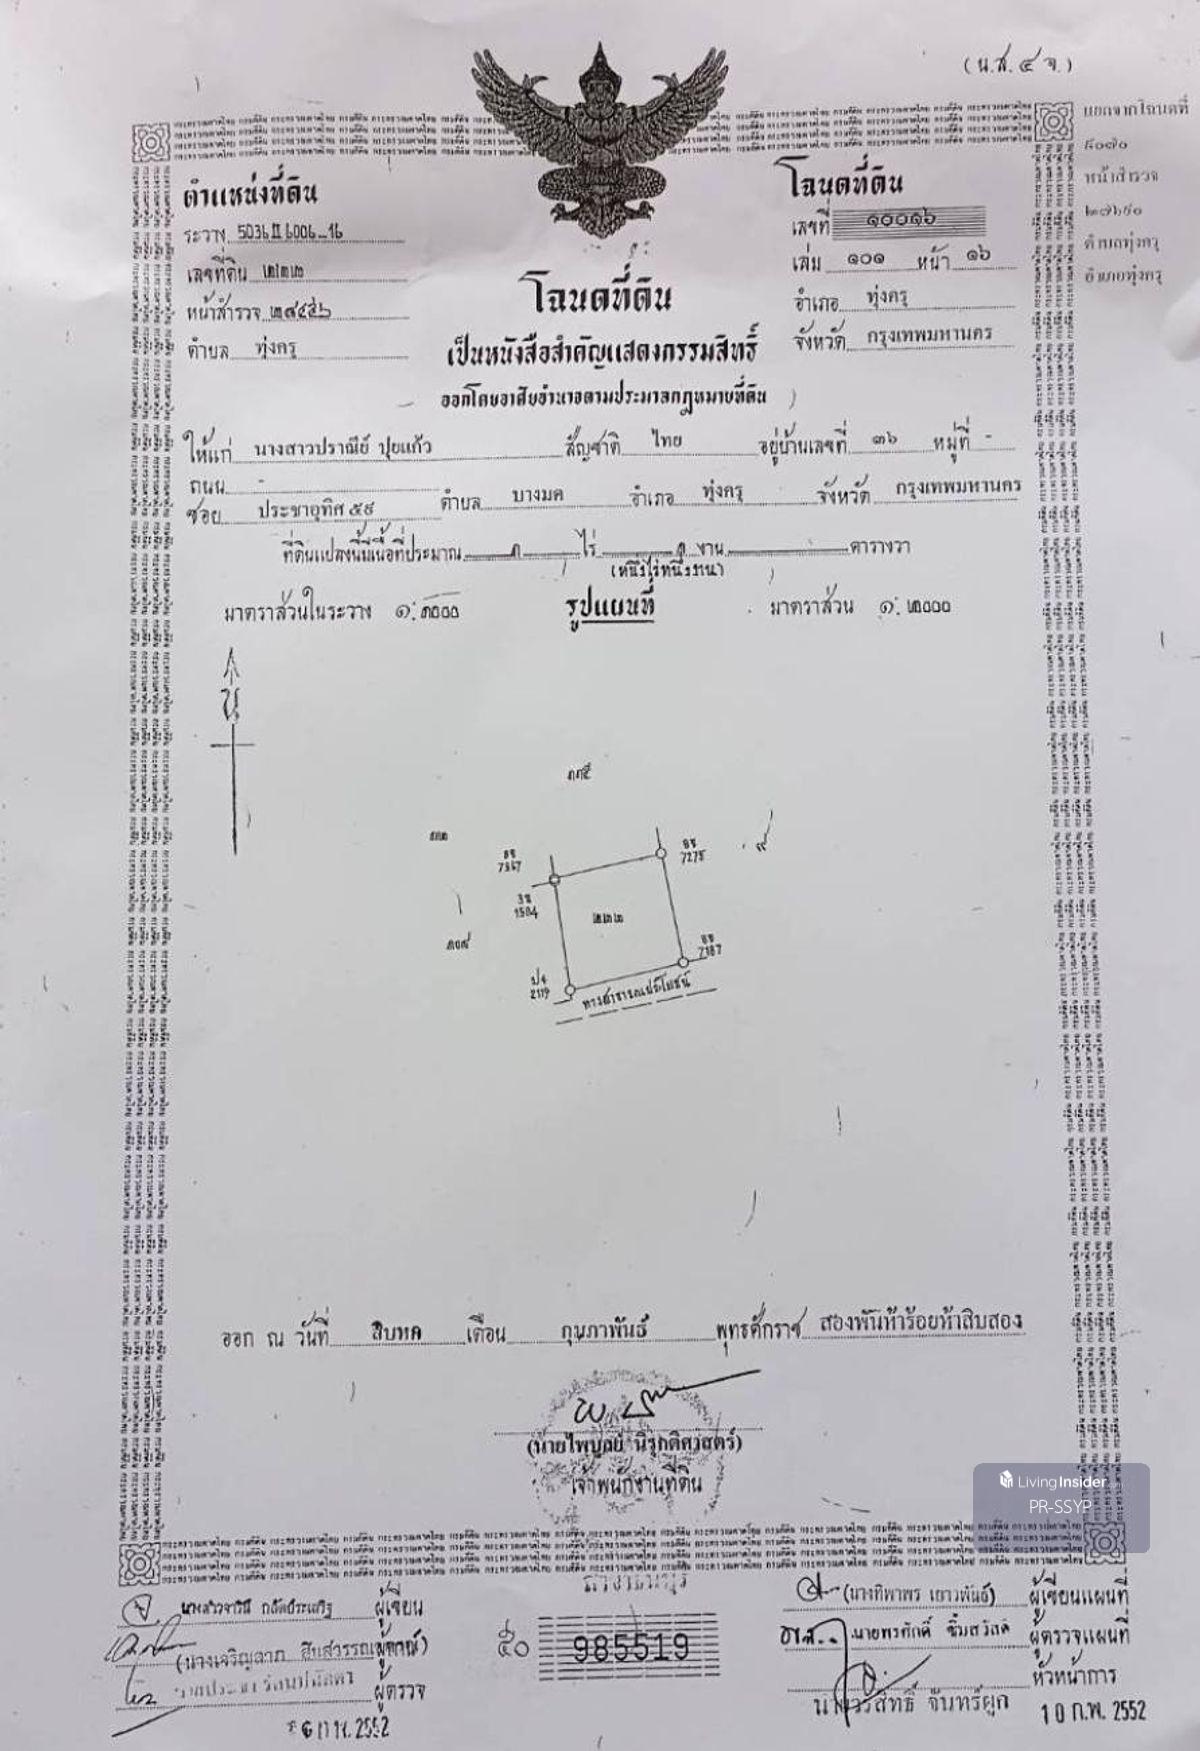 (น.ส.๔ จ.)
แยกจากโฉนดที่
หน้าสำรวจ
ตำบลทุ่งครุ
อำเภอทุ่งครุ
ตำแหน่งที่ดิน
ระวาง 5036 II 6006-16
เลขที่ดิน ๒๒๒
หน้าสำรวจ
ตำบล ทุ่งครุ
โฉนดที่ดิน
เลขที่ ๑๐๐๑๖
เล่ม ๑๐๑ หน้า ๑๖
อำเภอ ทุ่งครุ
จังหวัด กรุงเทพมหานคร
โฉนดที่ดิน
เป็นหนังสือสำคัญแสดงกรรมสิทธิ์
ออกโดยอาศัยอำนาจตามประมวลกฎหมายที่ดิน
ให้แก่ นางสาวปราณีย์ ปุยแก้ว สัญชาติ ไทย อยู่บ้านเลขที่ ๓๖ หมู่ที่ -
ถนน -
ซอย ประชาอุทิศ ๕๔ ตำบล บางมด อำเภอ ทุ่งครุ จังหวัด กรุงเทพมหานคร
ที่ดินแปลงนี้มีเนื้อที่ประมาณ ๑ ไร่ ๑ งาน ตารางวา
(หนึ่งไร่หนึ่งงาน)
มาตราส่วนในระวาง รูปแผนที่ มาตราส่วน ๑:๒๐๐๐
น
๙
7275
3ช
1504
๒๒๒
7187
2119
ทางสาธารณประโยชน์
ออก ณ วันที่ สิบหก เดือน กุมภาพันธ์ พุทธศักราช สองพันห้าร้อยห้าสิบสอง
(นายไพบูลย์ นิรุกติศาสตร์)
เจ้าพนักงานที่ดิน
LivingInsider
PR-SSYP
ผู้เขียน
(นางเจริญลาภ สินสุวรรณ
ผู้ตรวจ
2552
๕๐ 985519
(นางทิพาพร เยาวพันธ์) ผู้เขียนแผนที่
นายพรศักดิ์ ผู้ตรวจแผนที่
หัวหน้าการ
นายวรสิทธิ์ จันทรีผูก 10 ก.พ. 2552